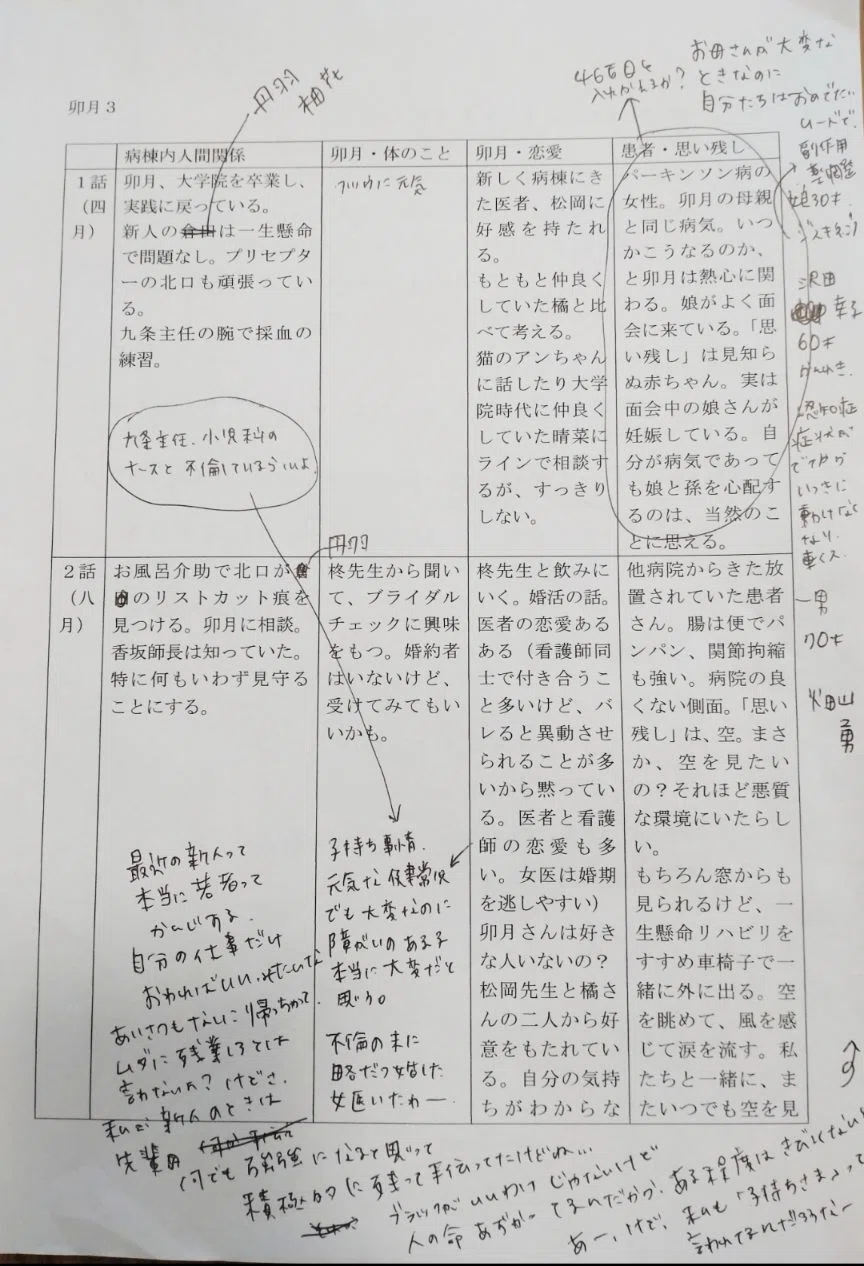 お母さんが大変な
ときなのに
自分たちはおめでたい
ムードで、
4話目と
入れかえるか?
丹羽
柚花
卯月3
病棟内人間関係
卯月・体のこと
卯月・恋愛
患者・思い残し
1話
(四
月)
卯月、大学院を卒業し、
実践に戻っている。
新人の倉田は一生懸命
で問題なし。プリセプタ
ーの北口も頑張ってい
る。
九条主任の腕で採血の
練習。
九条主任、小児科の
ナースと不倫しているらしいよ
フツウに元気
新しく病棟にき
た医者、松岡に
好感を持たれ
る。
もともと仲良く
していた橘と比
べて考える。
猫のアンちゃん
に話したり大学
院時代に仲良く
していた晴菜に
ラインで相談す
るが、すっきり
しない。
パーキンソン病の
女性。卯月の母親
と同じ病気。いつ
かこうなるのか、
と卯月は熱心に関
わる。娘がよく面
会に来ている。「思
い残し」は見知ら
ぬ赤ちゃん。実は
面会中の娘さんが
妊娠している。自
分が病気であって
も娘と孫を心配す
るのは、当然のこ
とに思える。
副作用
薬調整
娘30才
ジスキネジア
沢田
幸子
60才
認知症
症状が
でてから
いっきに
動けなく
なり、
車イス
2話
(八
月)
丹羽
お風呂介助で北口が倉
田のリストカット痕を
見つける。卯月に相談。
香坂師長は知っていた。
特に何もいわず見守る
ことにする。
最近の新人って
本当に若者って
かんじする。
自分の仕事だけ
おわればいいみたいな
あいさつもないに帰っちゃって
ムダに残業しろとは
言わないわ?けどさ、
私が新人のときは
先輩
何でも勉強になると思って
積極的に残って手伝ってたけどね…
柊先生から聞い
て、ブライダル
チェックに興味
をもつ。婚約者
はいないけど、
受けてみてもい
いかも。
子持ち事情。
元気な健常児
でも大変なのに
障がいのある子
本当に大変だと
思う。
不倫の末に
略だつ婚した
女医いたわー
柊先生と飲みに
いく。婚活の話。
医者の恋愛ある
ある(看護師同
士で付き合うこ
と多いけど、バ
レると異動させ
られることが多
いから黙ってい
る。医者と看護
師の恋愛も多
い。女医は婚期
を逃しやすい)
卯月さんは好き
な人いないの?
松岡先生と橘さ
んの二人から好
意をもたれてい
る。自分の気持
ちがわからな
他病院からきた放
置されていた患者
さん。腸は便でパ
ンパン、関節拘縮
も強い。病院の良
くない側面。「思い
残し」は、空。まさ
か、空を見たい
の?それほど悪質
な環境にいたらし
い。
もちろん窓からも
見られるけど、一
生懸命リハビリを
すすめ車椅子で一
緒に外に出る。空
を眺めて、風を感
じて涙を流す。私
たちと一緒に、ま
たいつでも空を見
男
70才
畑山
勇
ブラックがいいわけじゃないけど
人の命あずかってるんだから、ある程度はきびしくないと
あー、けど、私も「子持ちさま」って
言われてるんだろうなー